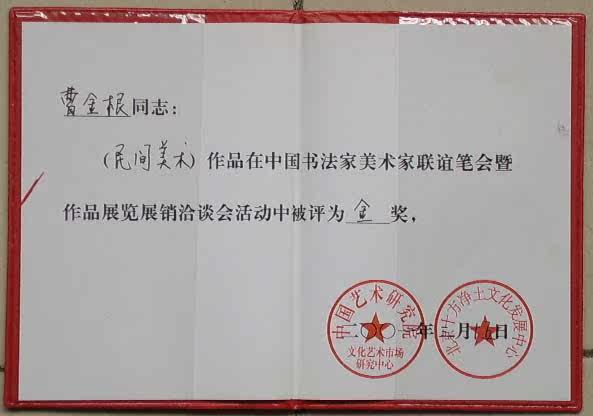 曹金根同志：
（民间美术）作品在中国书法家美术家联谊笔会暨
作品展览展销洽谈会活动中被评为金奖，
中国艺术研究院
文化艺术市场
研究中心
北京十方净土文化发展中心
二〇〇 年 月 日